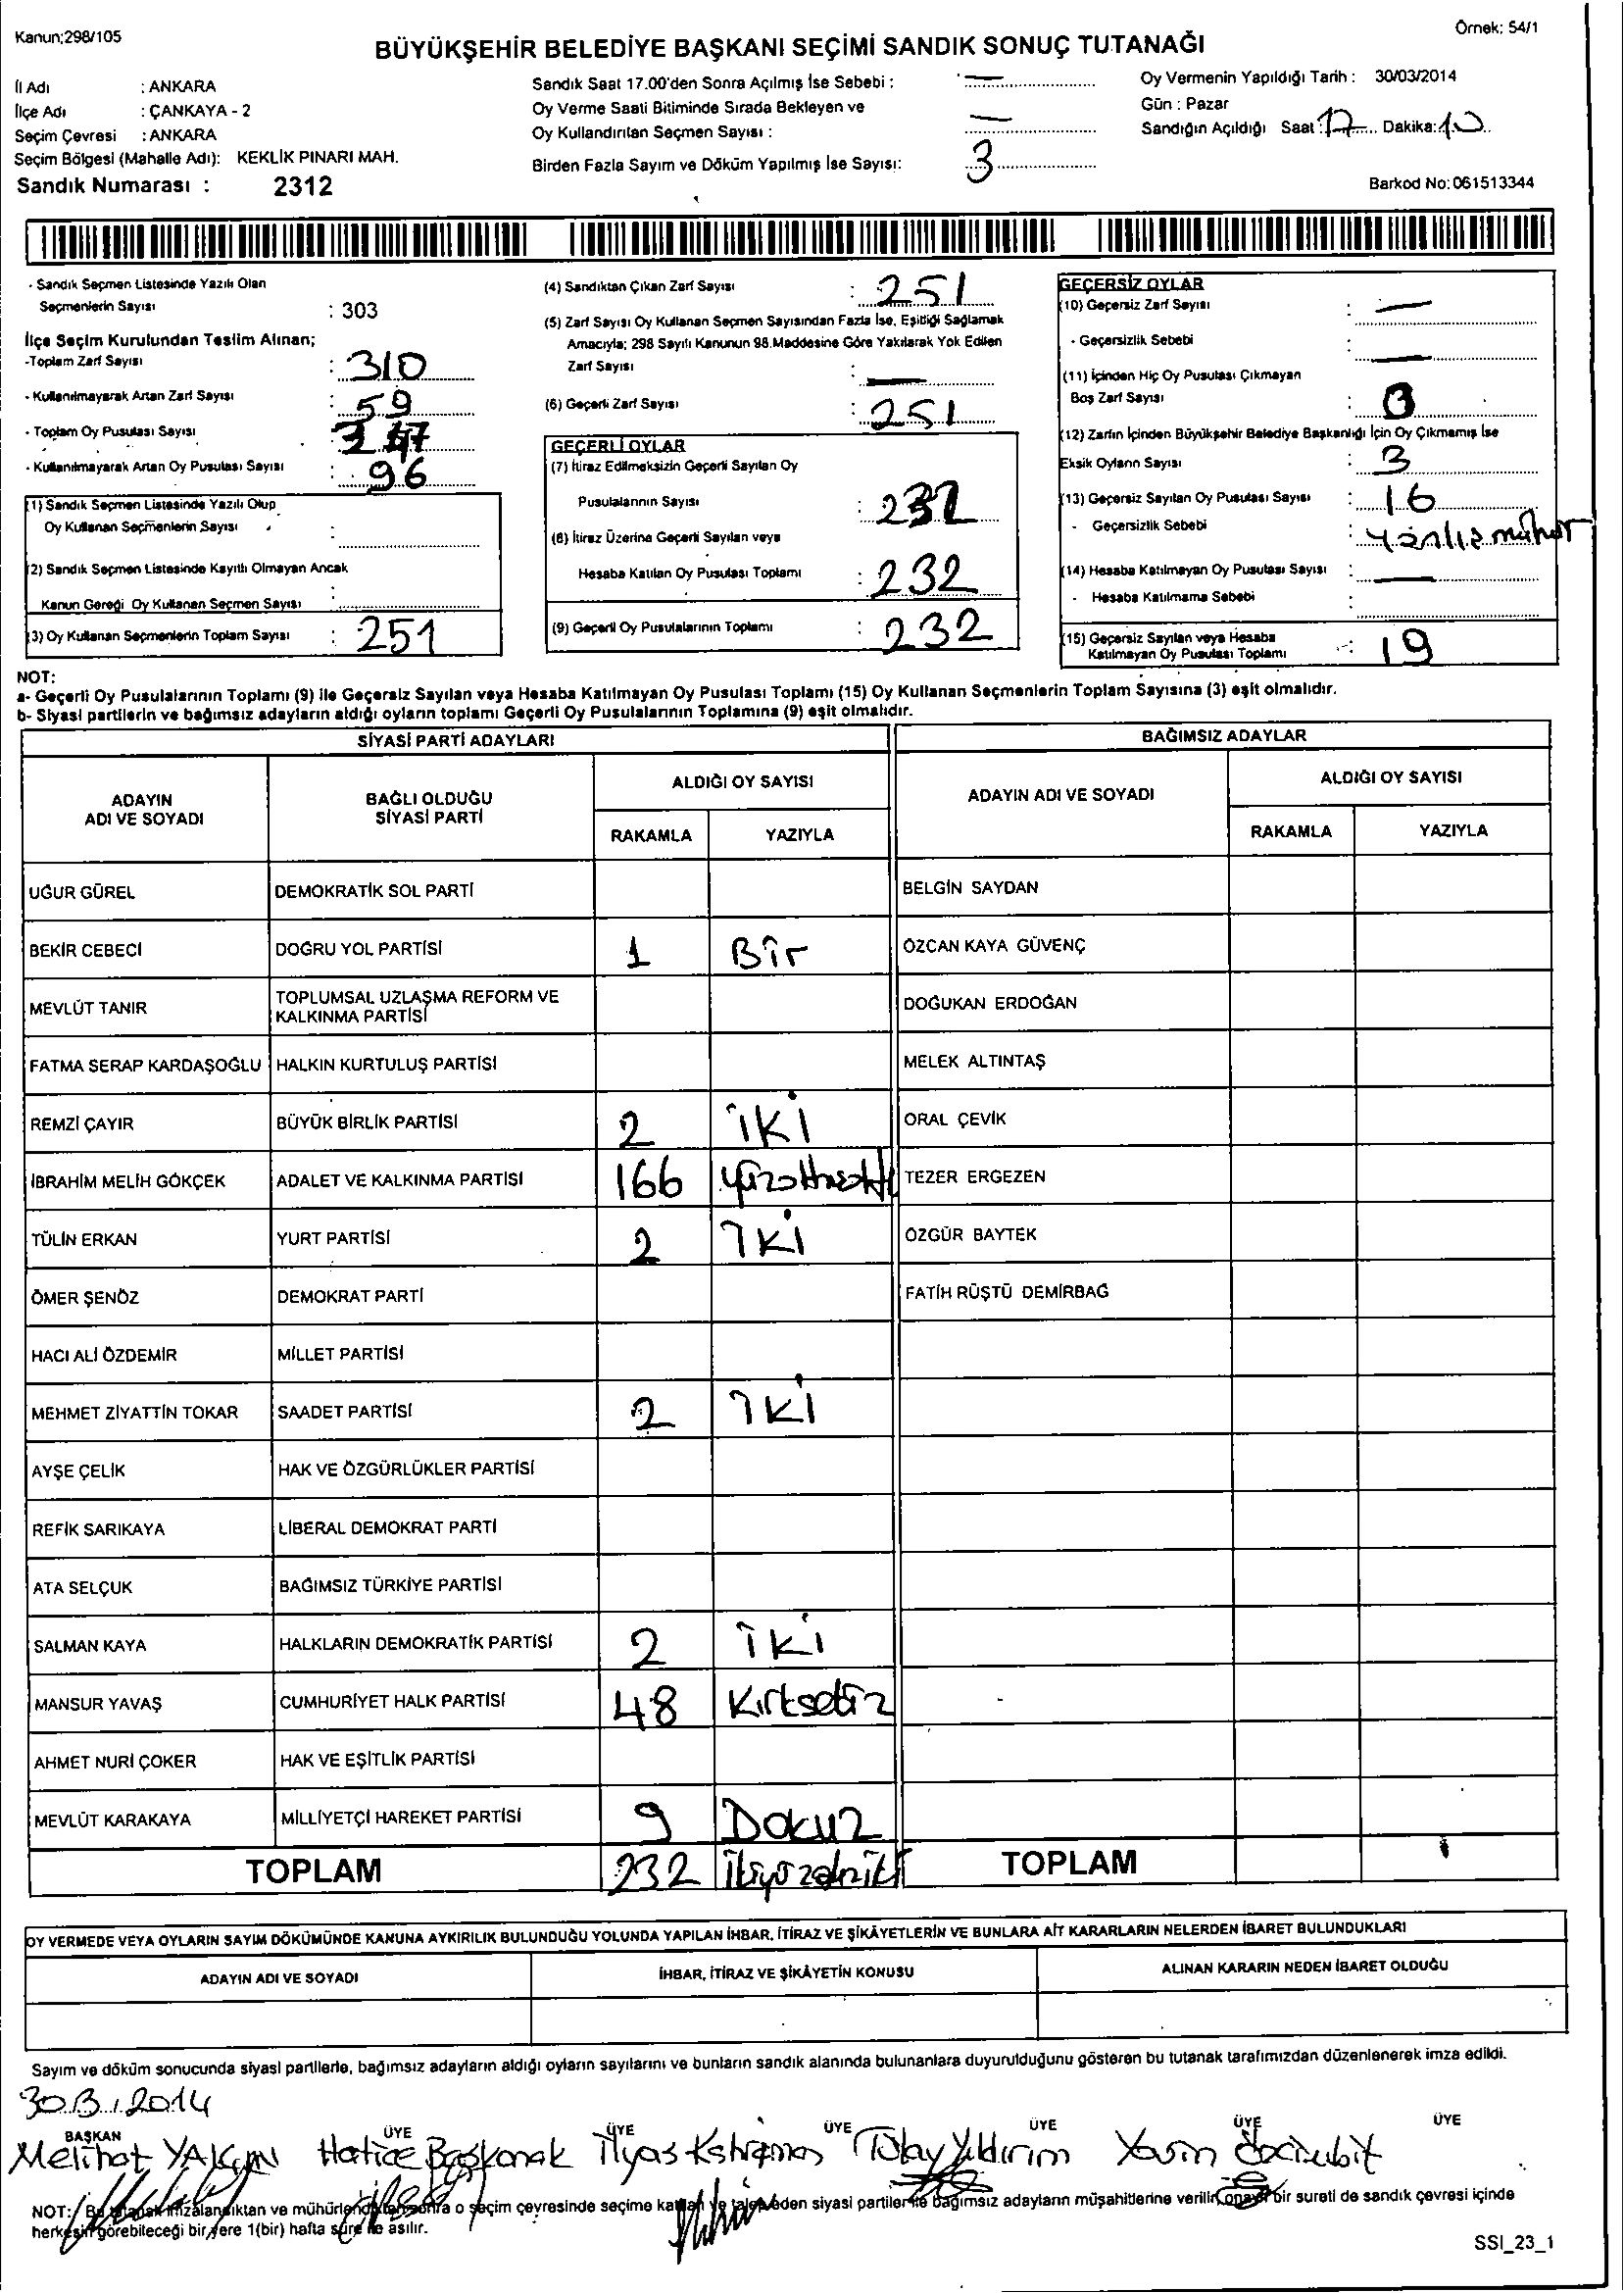 Kanun;298/105
Örnek: 54/1
BÜYÜKŞEHİR BELEDİYE BAŞKANI SEÇİMİ SANDIK SONUÇ TUTANAĞI
İl Adı : ANKARA
İlçe Adı : ÇANKAYA - 2
Seçim Çevresi : ANKARA
Seçim Bölgesi (Mahalle Adı): KEKLİK PINARI MAH.
Sandık Numarası : 2312
Sandık Saat 17.00'den Sonra Açılmış İse Sebebi : —
Oy Verme Saati Bitiminde Sırada Bekleyen ve
Oy Kullandırılan Seçmen Sayısı : —
Birden Fazla Sayım ve Döküm Yapılmış İse Sayısı: 3
Oy Vermenin Yapıldığı Tarih : 30/03/2014
Gün : Pazar
Sandığın Açıldığı Saat : 17 Dakika: 10
Barkod No: 061513344
- Sandık Seçmen Listesinde Yazılı Olan
Seçmenlerin Sayısı : 303
İlçe Seçim Kurulundan Teslim Alınan;
-Toplam Zarf Sayısı : 310
- Kullanılmayarak Artan Zarf Sayısı : 59
- Toplam Oy Pusulası Sayısı : 347
- Kullanılmayarak Artan Oy Pusulası Sayısı : 96
(1) Sandık Seçmen Listesinde Yazılı Olup
Oy Kullanan Seçmenlerin Sayısı :
(2) Sandık Seçmen Listesinde Kayıtlı Olmayan Ancak
Kanun Gereği Oy Kullanan Seçmen Sayısı :
(3) Oy Kullanan Seçmenlerin Toplam Sayısı : 251
(4) Sandıktan Çıkan Zarf Sayısı : 251
(5) Zarf Sayısı Oy Kullanan Seçmen Sayısından Fazla İse, Eşitliği Sağlamak
Amacıyla; 298 Sayılı Kanunun 98.Maddesine Göre Yakılarak Yok Edilen
Zarf Sayısı : —
(6) Geçerli Zarf Sayısı : 251
GEÇERLİ OYLAR
(7) İtiraz Edilmeksizin Geçerli Sayılan Oy
Pusulalarının Sayısı : 232
(8) İtiraz Üzerine Geçerli Sayılan veya
Hesaba Katılan Oy Pusulası Toplamı : 232
(9) Geçerli Oy Pusulalarının Toplamı : 232
GEÇERSİZ OYLAR
(10) Geçersiz Zarf Sayısı : —
- Geçersizlik Sebebi : —
(11) İçinden Hiç Oy Pusulası Çıkmayan
Boş Zarf Sayısı : 0
(12) Zarfın İçinden Büyükşehir Belediye Başkanlığı İçin Oy Çıkmamış İse
Eksik Oyların Sayısı : 3
(13) Geçersiz Sayılan Oy Pusulası Sayısı : 16
- Geçersizlik Sebebi : yanlış mühür
(14) Hesaba Katılmayan Oy Pusulası Sayısı : —
- Hesaba Katılmama Sebebi :
(15) Geçersiz Sayılan veya Hesaba
Katılmayan Oy Pusulası Toplamı : 19
NOT:
a- Geçerli Oy Pusulalarının Toplamı (9) ile Geçersiz Sayılan veya Hesaba Katılmayan Oy Pusulası Toplamı (15) Oy Kullanan Seçmenlerin Toplam Sayısına (3) eşit olmalıdır.
b- Siyasi partilerin ve bağımsız adayların aldığı oyların toplamı Geçerli Oy Pusulalarının Toplamına (9) eşit olmalıdır.
SİYASİ PARTİ ADAYLARI
ADAYIN ADI VE SOYADI
BAĞLI OLDUĞU SİYASİ PARTİ
ALDIĞI OY SAYISI
RAKAMLA YAZIYLA
UĞUR GÜREL DEMOKRATİK SOL PARTİ
BEKİR CEBECİ DOĞRU YOL PARTİSİ 1 Bir
MEVLÜT TANIR TOPLUMSAL UZLAŞMA REFORM VE KALKINMA PARTİSİ
FATMA SERAP KARDAŞOĞLU HALKIN KURTULUŞ PARTİSİ
REMZİ ÇAYIR BÜYÜK BİRLİK PARTİSİ 2 iki
İBRAHİM MELİH GÖKÇEK ADALET VE KALKINMA PARTİSİ 166 yüzaltmışaltı
TÜLİN ERKAN YURT PARTİSİ 2 iki
ÖMER ŞENÖZ DEMOKRAT PARTİ
HACI ALİ ÖZDEMİR MİLLET PARTİSİ
MEHMET ZİYATTİN TOKAR SAADET PARTİSİ 2 iki
AYŞE ÇELİK HAK VE ÖZGÜRLÜKLER PARTİSİ
REFİK SARIKAYA LİBERAL DEMOKRAT PARTİ
ATA SELÇUK BAĞIMSIZ TÜRKİYE PARTİSİ
SALMAN KAYA HALKLARIN DEMOKRATİK PARTİSİ 2 iki
MANSUR YAVAŞ CUMHURİYET HALK PARTİSİ 48 Kırksekiz
AHMET NURİ ÇOKER HAK VE EŞİTLİK PARTİSİ
MEVLÜT KARAKAYA MİLLİYETÇİ HAREKET PARTİSİ 9 Dokuz
TOPLAM 232
BAĞIMSIZ ADAYLAR
ADAYIN ADI VE SOYADI
ALDIĞI OY SAYISI
RAKAMLA YAZIYLA
BELGİN SAYDAN
ÖZCAN KAYA GÜVENÇ
DOĞUKAN ERDOĞAN
MELEK ALTINTAŞ
ORAL ÇEVİK
TEZER ERGEZEN
ÖZGÜR BAYTEK
FATİH RÜŞTÜ DEMİRBAĞ
TOPLAM
OY VERMEDE VEYA OYLARIN SAYIM DÖKÜMÜNDE KANUNA AYKIRILIK BULUNDUĞU YOLUNDA YAPILAN İHBAR, İTİRAZ VE ŞİKÂYETLERİN VE BUNLARA AİT KARARLARIN NELERDEN İBARET BULUNDUKLARI
ADAYIN ADI VE SOYADI
İHBAR, İTİRAZ VE ŞİKÂYETİN KONUSU
ALINAN KARARIN NEDEN İBARET OLDUĞU
Sayım ve döküm sonucunda siyasi partilerle, bağımsız adayların aldığı oyların sayılarını ve bunların sandık alanında bulunanlara duyurulduğunu gösteren bu tutanak tarafımızdan düzenlenerek imza edildi.
30.3.2014
BAŞKAN ÜYE ÜYE ÜYE ÜYE ÜYE ÜYE
Melihat Hatice Başkonak İlyas Tülay Yıldırım
NOT: Bu tutanak imzalandıktan ve mühürlendikten sonra o seçim çevresinde seçime katılan ve talep eden siyasi partiler ile bağımsız adayların müşahitlerine verilir, onaylı bir sureti de sandık çevresi içinde
herkesin görebileceği bir yere 1(bir) hafta süre ile asılır.
SSI_23_1